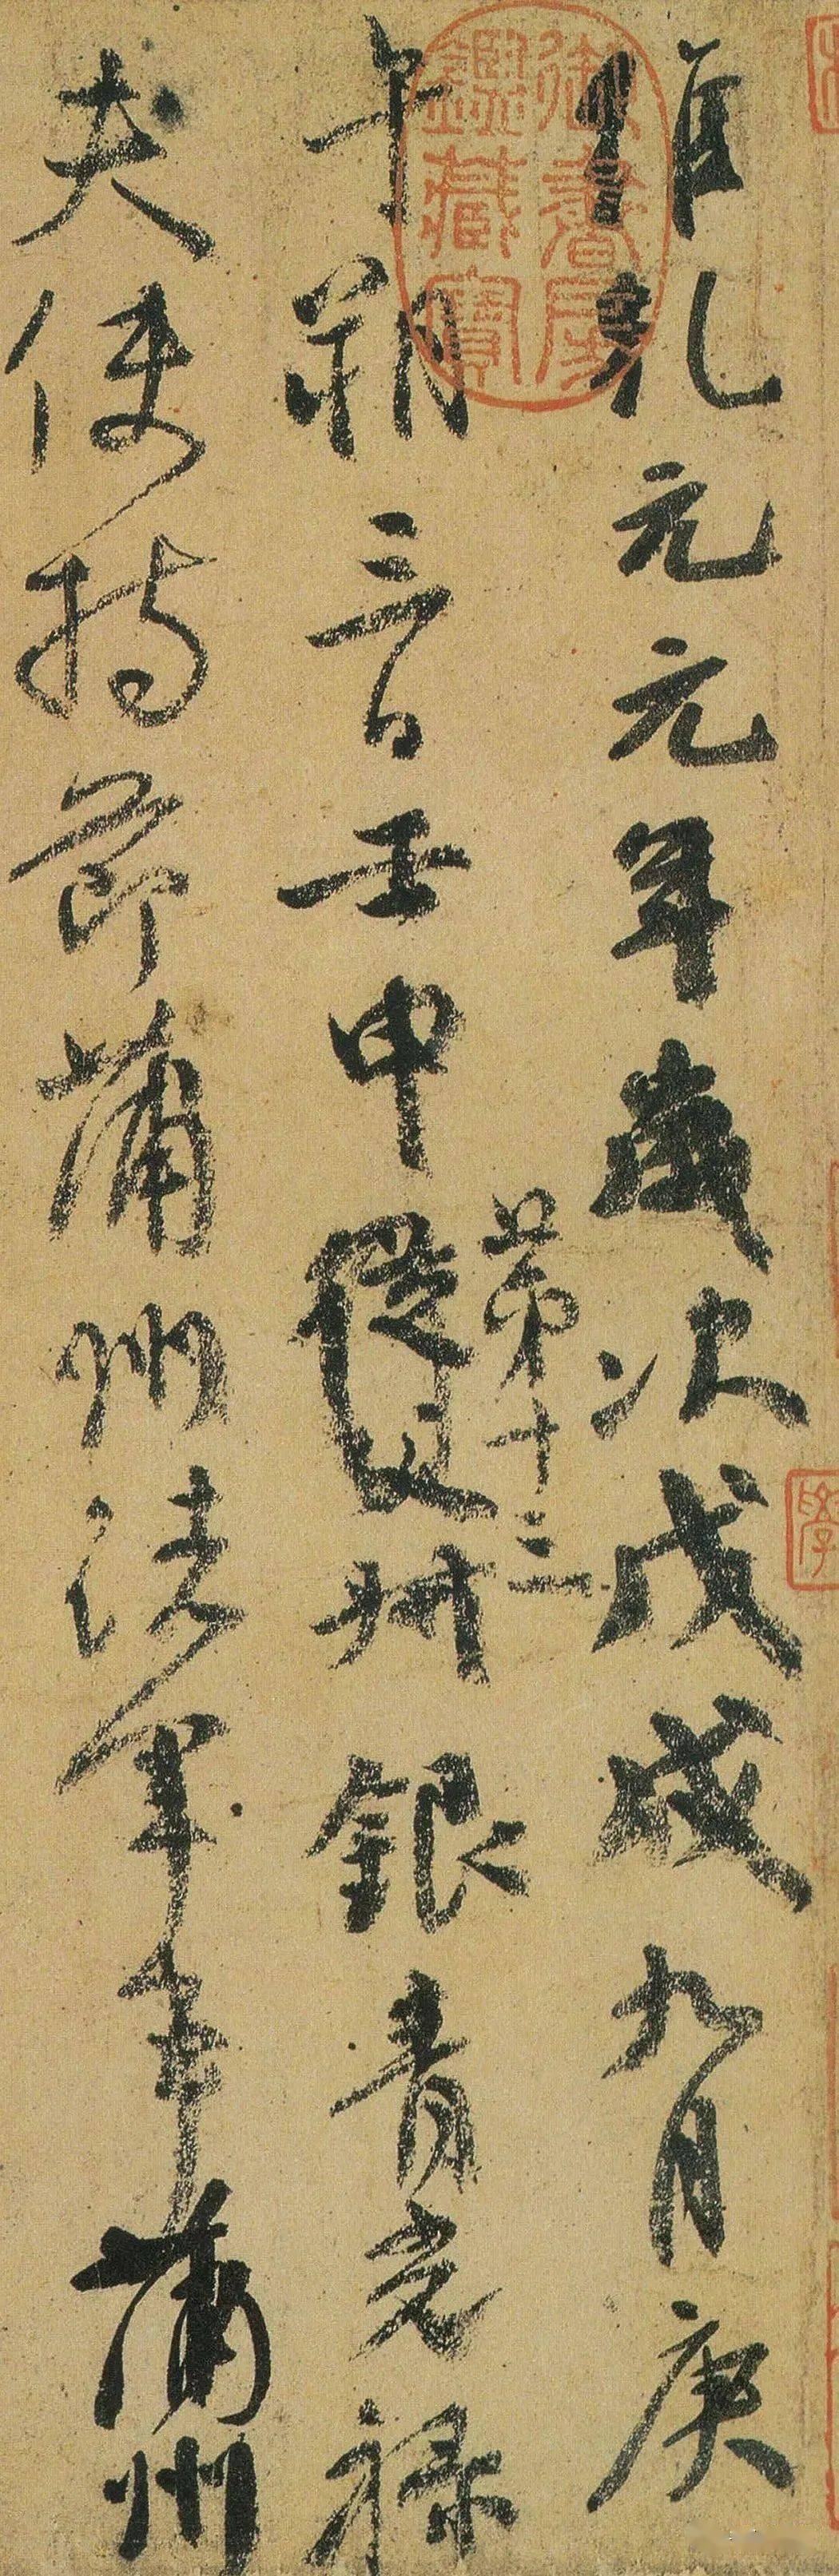 維乾元元年歲次戊戌九月庚
午朔三日壬申從父叔銀青光祿
第十三
夫使持節蒲州諸軍事蒲州
御書房鑑藏寶